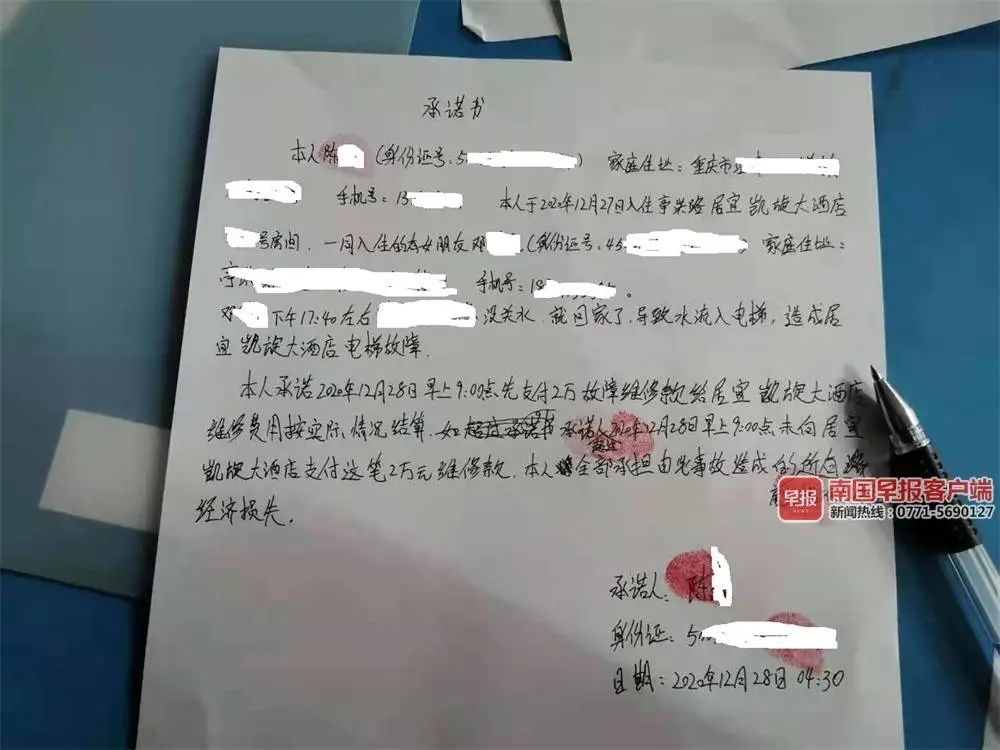 承诺书
本人陈 (身份证号:5 ) 家庭住址:重庆市
手机号:13 本人于2020年12月27日入住 居宜凯旋大酒店
号房间,一同入住的为女朋友邓 (身份证号:45 ) 家庭住址:
手机号:18 。
邓 下午17:40左右 没关水,就回家了,导致水流入电梯,造成居
宜凯旋大酒店电梯故障.
本人承诺2020年12月28日早上9:00点先支付2万故障维修款给居宜凯旋大酒店
维修费用按实际情况结算.如 承诺人2020年12月28日早上9:00点未向居宜
凯旋大酒店支付这笔2万元维修款,本人 全部承担由此事故造成的所有
经济损失.
早报
NEWS
南国早报客户端
新闻热线:0771-5690127
承诺人:陈
身份证:5
日期:2020年12月28日 04:30